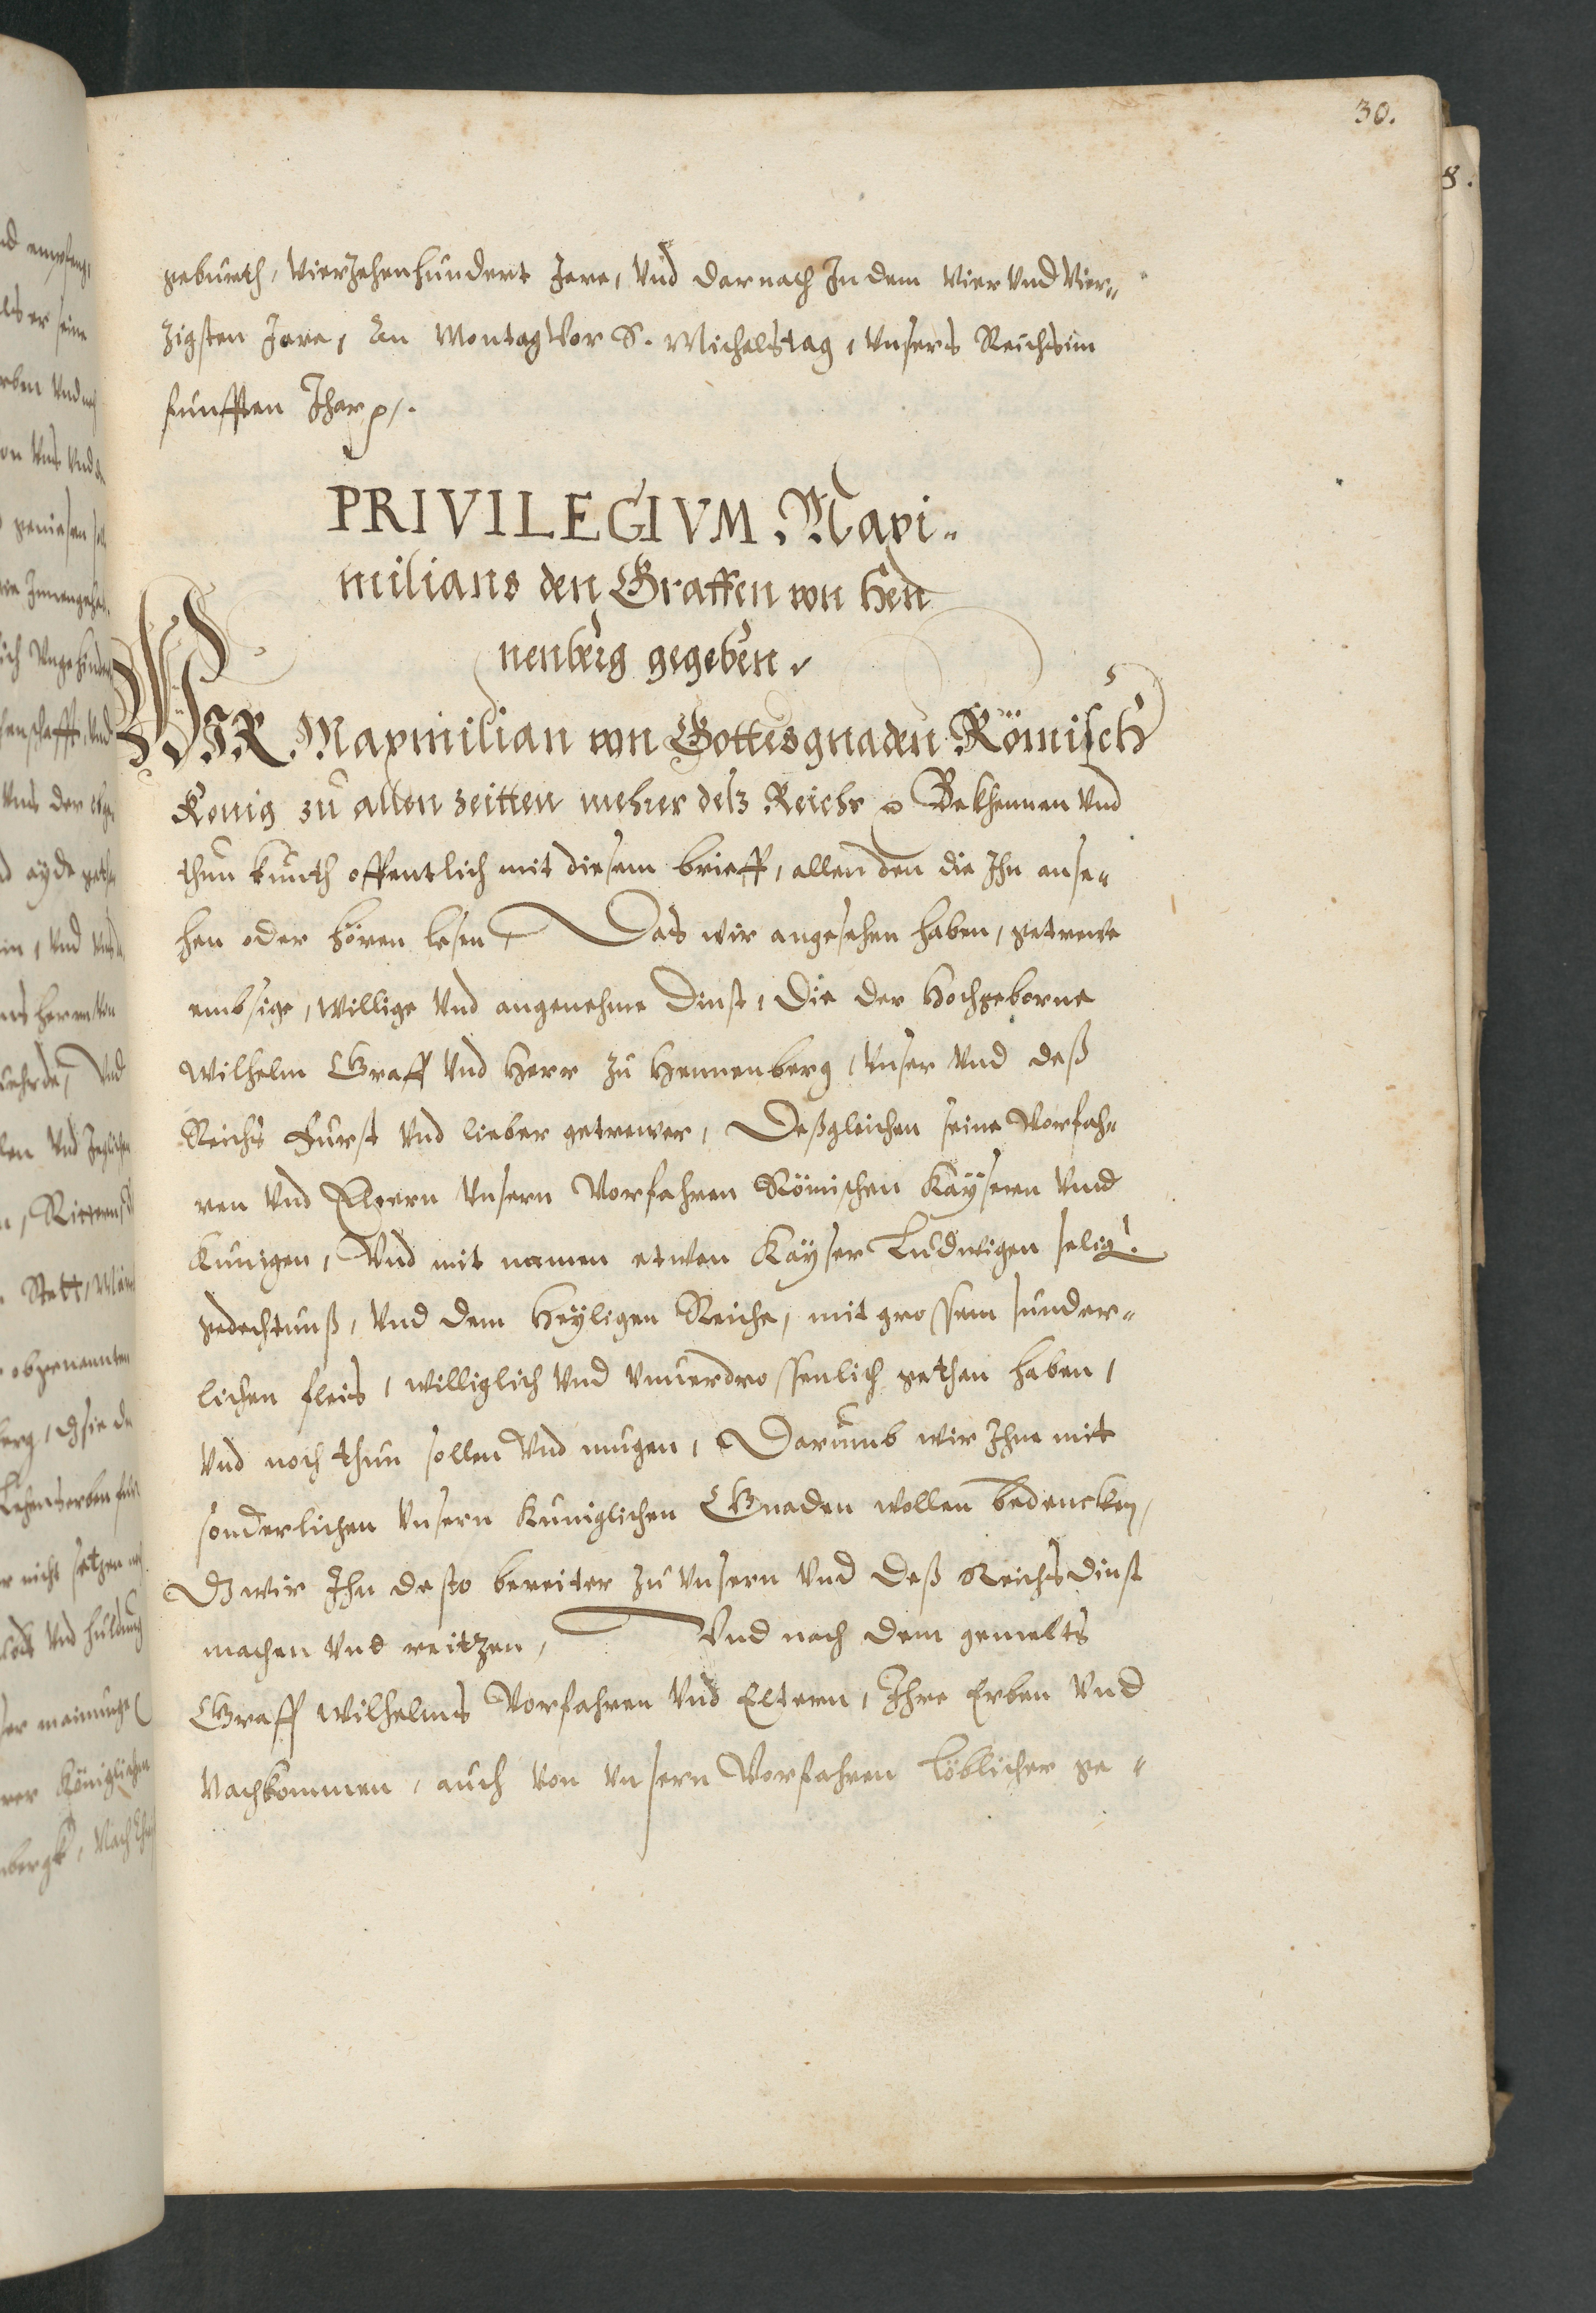 30.
8.
geburth, Vierzehenhundert Jare, Vnd darnach In dem Vier Vnd Vier„
zigsten Jare, An Montag Vor S. Michelstag, Vnsers Reichs im
funfften Jhar p/.
PRIVILEGIVM Maxi„
milians den Graffen von Hen
nenberg gegeben.
WIR Maxmilian von Gottes gnaden Römisch
Konig zu allen zeitten mehrer deß Reichs p Bekhennen Vnd
thun kunth offentlich mit diesem brieff, allen den die Ihn anse„
hen oder hören lesen, Das wir angesehen haben, getrewe
embsige, willige Vnd angenehme Dinst, Die der Hochgeborne
Wilhelm Graff Vnd Herr zu Hennenberg, Vnser Vnd deß
Reichs Furst Vnd lieber getrewer, Deßgleichen seine Vorfah„
ren Vnd Eltern Vnsern Vorfahren Römischen Kaysern Vnnd
Kunigen, Vnd mit namen etwen Kayser Ludwigen selig.
gedechtnuß, Vnd dem Heyligen Reiche, mit grossem sunder„
lichen fleis, williglich Vnd Vnuerdrossenlich gethan haben,
Vnd noch thun sollen Vnd mugen, Darumb wir Ihne mit
sonderlichen Vnsern Kuniglichen Gnaden wollen bedencken,
Dz wir Ihn desto bereiter zu Vnsern Vnd deß Reichs Dinst
machen Vnd reitzen, Vnd nach dem gemelts
Graff Wilhelms Vorfahren Vnd Eltern, Ihre Erben Vnd
Nachkommen, auch Von Vnsern Vorfahren löblicher ge„